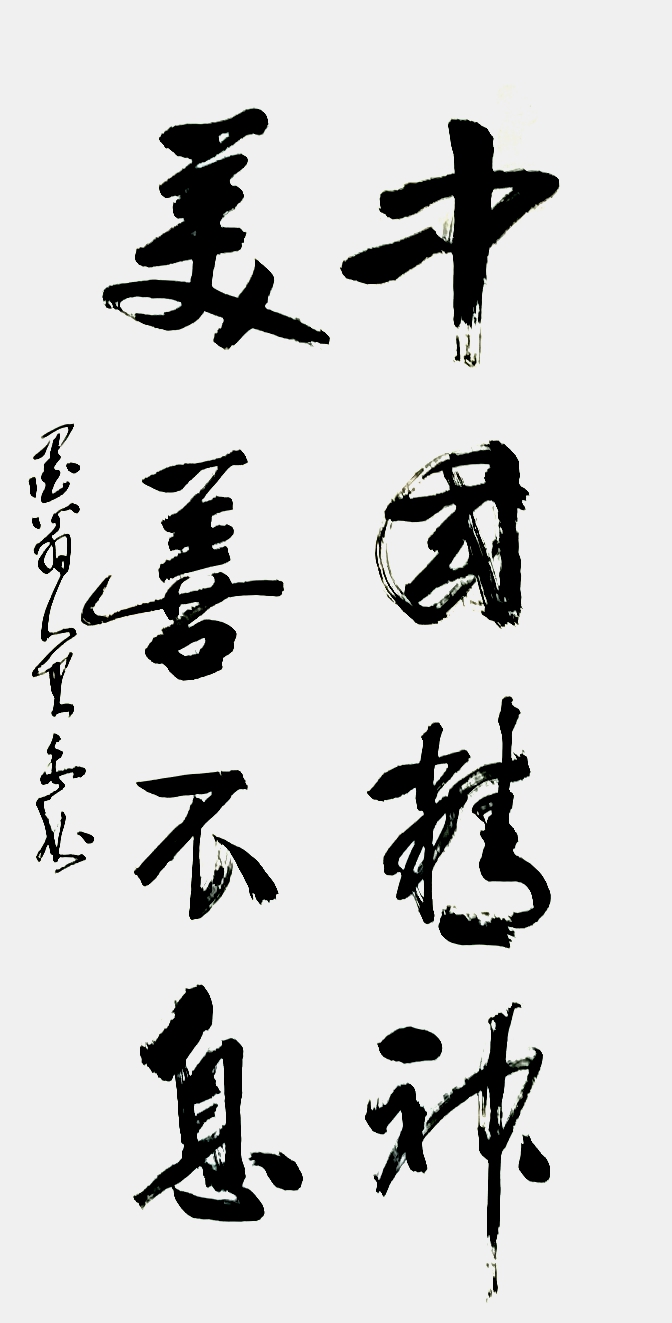 中国精神
美善不息
墨翁